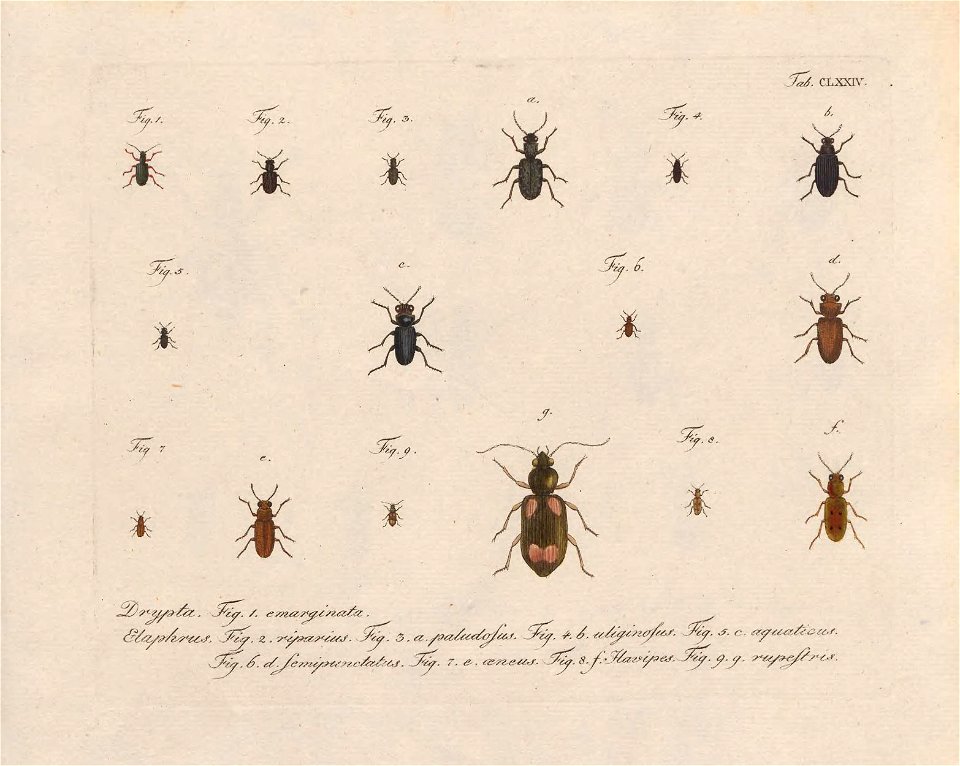 Tab. CLXXIV.
Fig. 1. Fig. 2. Fig. 3. a. Fig. 4. b.
Fig. 5. c. Fig. 6. d.
Fig 7 e. Fig. 9. g. Fig. 8. f.
Drypta. Fig. 1. emarginata.
Elaphrus. Fig. 2. riparius. Fig. 3. a. paludoſus. Fig. 4. b. uliginoſus. Fig. 5. c. aquaticus.
Fig. 6. d. ſemipunctatus. Fig. 7. e. æneus. Fig. 8. f. Flavipes. Fig. 9. g. rupeſtris.